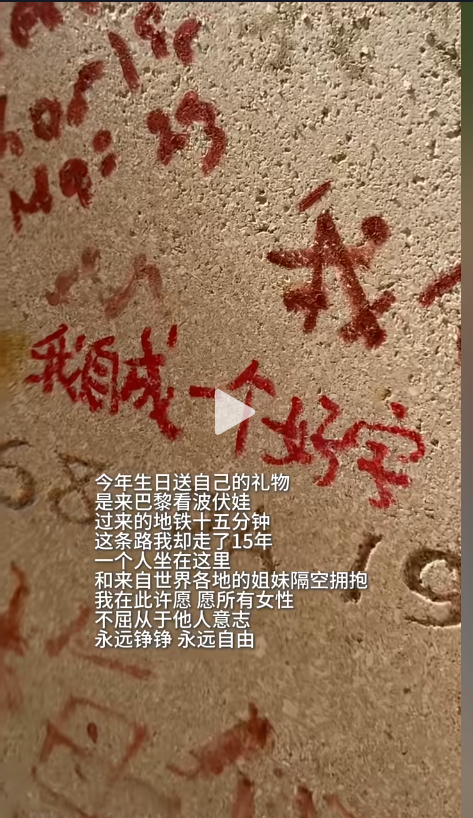 23
我
我自成一个好字
今年生日送自己的礼物
是来巴黎看波伏娃
过来的地铁十五分钟
这条路我却走了15年
一个人坐在这里
和来自世界各地的姐妹隔空拥抱
我在此许愿 愿所有女性
不屈从于他人意志
永远铮铮 永远自由
19